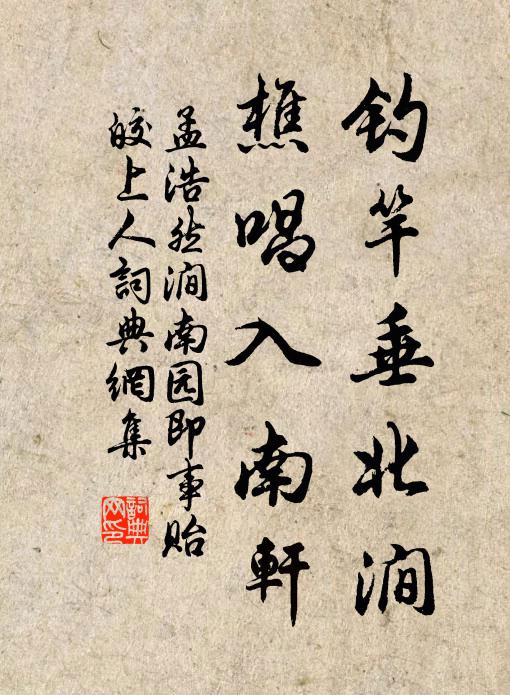 钓竿垂北涧
樵唱入南軒
孟浩然涧南园即事贻
皎上人詞典網集
詞典
网印